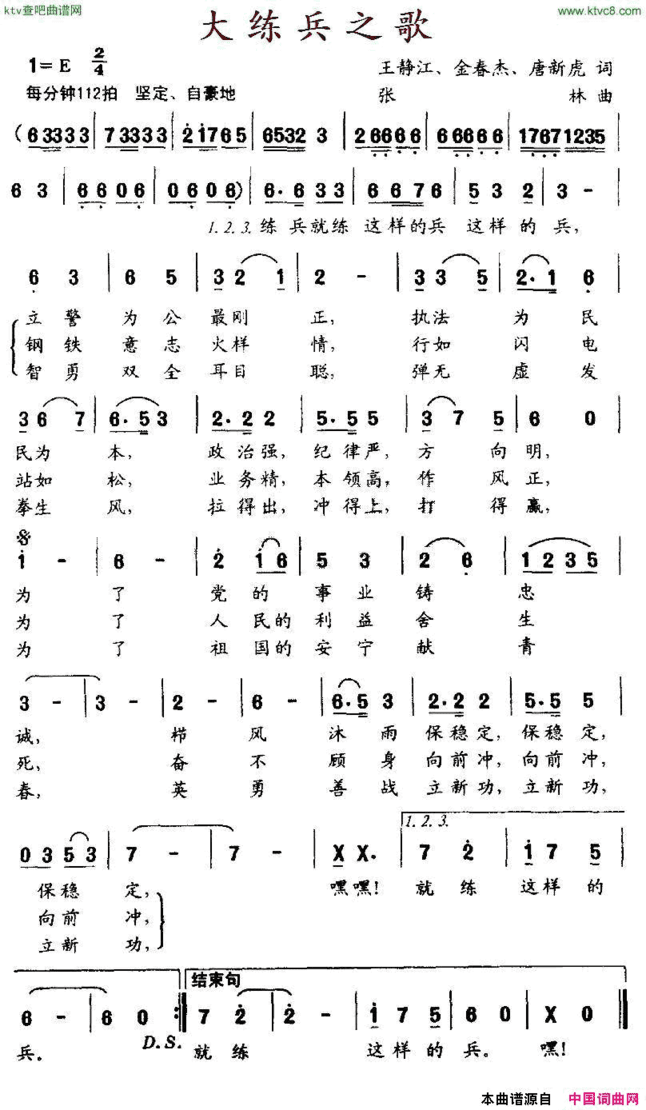 ktv查吧曲谱网
www.ktvc8.com
大练兵之歌
1=E 2/4
王静江、金春杰、唐新虎 词
每分钟112拍 坚定、自豪地
张 林 曲
(6 3333 | 7 3333 | 2 1765 | 6532 3 | 2 6666 | 6 6666 | 1767 1235 |
6 3 | 6 6 0 6 | 0 6 0 6) | 6· 6 3 3 | 6 6 7 6 | 5 3 2 | 3 - |
1. 2. 3. 练兵就练 这样的兵 这样的 兵,
6 3 | 6 5 | 3 2 1 | 2 - | 3 3 5 | 2· 1 6 |
立 警 为 公 最刚 正, 执法 为 民
钢 铁 意 志 火样 情, 行如 闪 电
智 勇 双 全 耳目 聪, 弹无 虚 发
3 6 7 | 6· 5 3 | 2· 2 2 | 5· 5 5 | 3 7 5 | 6 0 |
民为 本, 政治强, 纪律严, 方 向 明,
站如 松, 业务精, 本领高, 作 风 正,
拳生 风, 拉得出, 冲得上, 打 得 赢,
1 - | 6 - | 2 1 6 | 5 3 | 2 6 | 1 2 3 5 |
为 了 党 的 事 业 铸 忠
为 了 人 民的 利 益 舍 生
为 了 祖 国的 安 宁 献 青
3 - | 3 - | 2 - | 6 - | 6· 5 3 | 2· 2 2 | 5· 5 5 |
诚, 栉 风 沐 雨 保稳定, 保稳定,
死, 奋 不 顾 身 向前冲, 向前冲,
春, 英 勇 善 战 立新功, 立新功,
1. 2. 3.
0 3 5 3 | 7 - | 7 - | X X· | 7 2 | 1 7 5 |
保稳 定, 嘿嘿! 就 练 这样 的
向前 冲,
立新 功,
结束句
6 - | 6 0 :‖ 7 2 | 2 - | 1 7 5 | 6 0 | X 0 ‖
兵. D.S. 就 练 这样 的 兵. 嘿!
本曲谱源自 中国词曲网